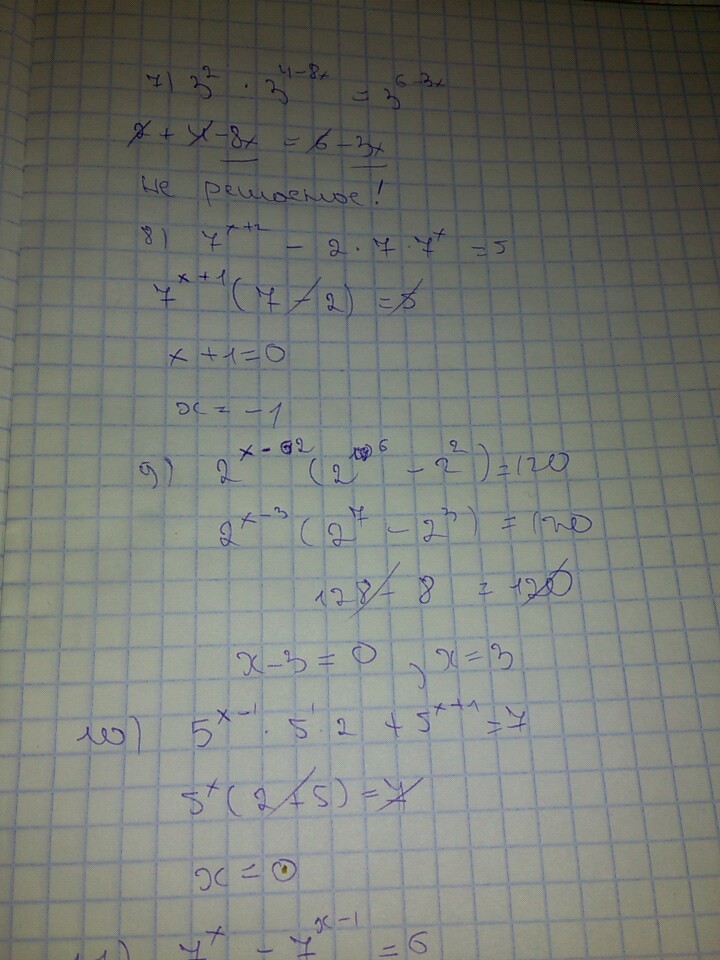 7) 3² · 3^(4-8x) = 3^(6-3x)
2 + 4 - 8x = 6 - 3x
не решаемое!
8) 7^(x+2) - 2 · 7 · 7^x = 5
7^(x+1) (7 - 2) = 5
x + 1 = 0
x = -1
9) 2^(x-2) (2^6 - 2²) = 120
2^(x-3) (2^7 - 2^3) = 120
128 - 8 = 120
x - 3 = 0, x = 3
10) 5^(x-1) · 5^1 · 2 + 5^(x+1) = 7
5^x (2 + 5) = 7
x = 0
11) 7^x - 7^(x-1) = 6